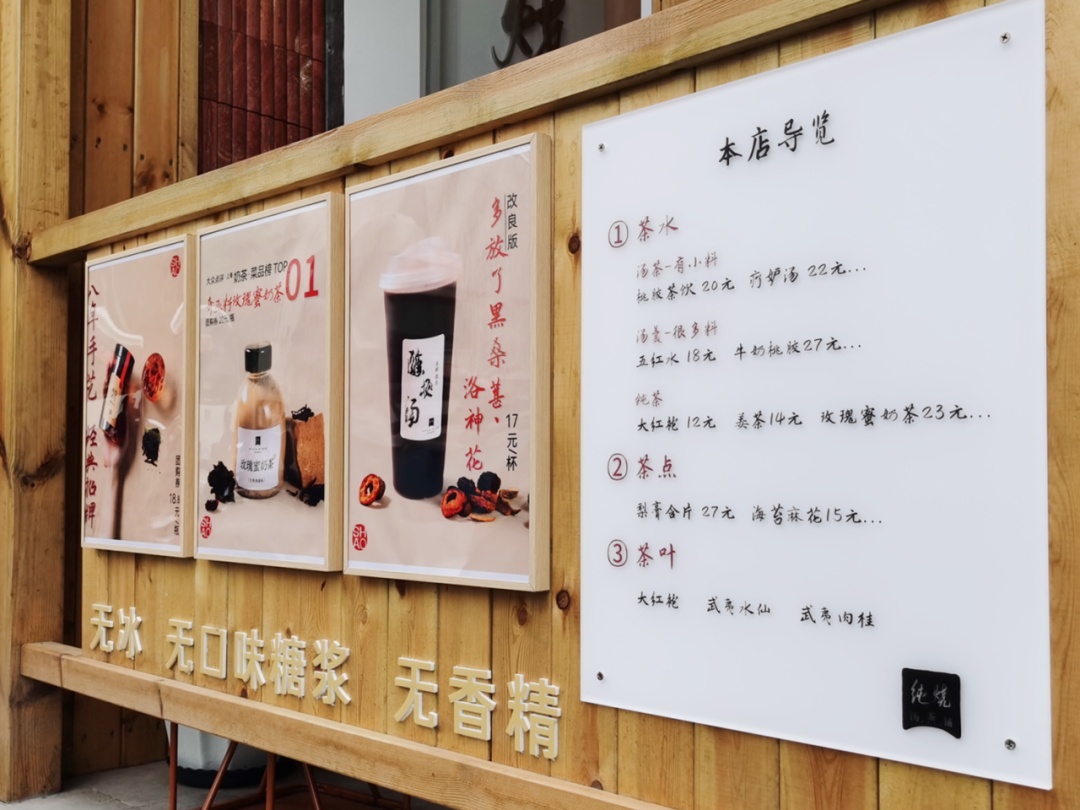 八年手艺 经典招牌
团购券
18.8元/瓶
大众点评 上海 奶茶·菜品榜 TOP01
玫瑰蜜奶茶
玫瑰蜜奶茶
改良版
多放了黑桑葚、
洛神花
17元/杯
SHAO
SHAO
无冰 无口味糖浆 无香精
本店导览
① 茶水
汤茶-有小料
桃胶茶饮20元 疗妒汤 22元...
汤羹-很多料
五红水 18元 牛奶桃胶27元...
纯茶
大红袍 12元 姜茶14元 玫瑰蜜奶茶23元...
② 茶点
梨膏合片 27元 海苔麻花15元...
③ 茶叶
大红袍 武夷水仙 武夷肉桂